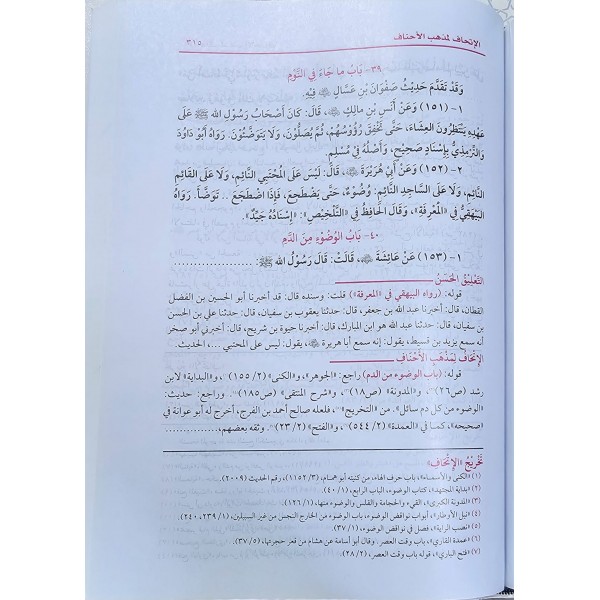 الإتحاف لمذهب الأحناف
٣١٥
٣٩- بَابُ مَا جَاءَ فِي النَّوْمِ
وَقَدْ تَقَدَّمَ حَدِيثُ صَفْوَانَ بْنِ عَسَّالٍ ﷺ فِيهِ.
١- (١٥١) وَعَنْ أَنَسِ بْنِ مَالِكٍ، قَالَ: كَانَ أَصْحَابُ رَسُولِ الله ﷺ عَلَى
عَهْدِهِ يَنْتَظِرُونَ العِشَاءَ، حَتَّى تَخْفِقَ رُؤُوسُهُمْ، ثُمَّ يُصَلُّونَ، وَلَا يَتَوَضَّئُونَ. رَوَاهُ أَبُو دَاوُدَ
وَالتِّرْمِذِيُّ بِإِسْنَادٍ صَحِيحٍ، وَأَصْلُهُ فِي مُسْلِمٍ.
٢- (١٥٢) وَعَنْ أَبِي هُرَيْرَةَ، قَالَ: لَيْسَ عَلَى المُحْتَبِي النَّائِمِ، وَلَا عَلَى القَائِمِ
النَّائِمِ، وَلَا عَلَى السَّاجِدِ النَّائِمِ: وُضُوْءٌ، حَتَّى يَضْطَجِعَ، فَإِذَا اضْطَجَعَ .. تَوَضَّأَ. رَوَاهُ
البَيْهَقِيُّ فِي «المَعْرِفَةِ»، وَقَالَ الحَافِظُ فِي «التَّلْخِيْصِ»: «إِسْنَادُهُ جَيِّدٌ».
٤٠- بَابُ الوُضُوْءِ مِنَ الدَّمِ
١- (١٥٣) عَنْ عَائِشَةَ، قَالَتْ: قَالَ رَسُوْلُ الله ﷺ: ..........
التَّعْلِيْقُ الحَسَنُ
قوله: (رواه البيهقي في «المعرفة») قلت: وسنده قال: قد أخبرنا أبو الحسين بن الفضل
القطان، قال: أخبرنا عبد الله بن جعفر، قال: حدثنا يعقوب بن سفيان، قال: حدثنا علي بن الحسن
بن سفيان، قال: حدثنا عبد الله هو ابن المبارك، قال: أخبرنا حيوة بن شريح، قال: أخبرني أبو صخر
أنه سمع يزيد بن قسيط، يقول: إنه سمع أبا هريرة، يقول: ليس على المحتبي ... الحديث.
الإِتْحَافُ لِمَذْهَبِ الأَحْنَافِ
قوله: (باب الوضوء من الدم) راجع: «الجوهر»، و«الكنى» (٢/ ١٥٥)، و«البداية» لابن
رشد (ص٢٦)، و«المدونة» (ص١٨)، و«شرح المنتقى» (ص١٨٥). وراجع: حديث:
«الوضوء من كل دم سائل». من «التخريج»، فلعله صالح أحمد بن الفرج، أخرج له أبو عوانة في
«صحيحه»، كما في «العمدة» (٢/ ٥٤٤)، و«الفتح» (٢/ ٢٣). وثقه بعضهم، ..........
تَخْرِيْجُ «الإِتْحَافِ»
(١) «الكنى والأسماء»، باب حرف الهاء، من كنيته أبو همام، (٣/ ١١٥٢)، رقم الحديث (٢٠٠٩).
(٢) «بداية المجتهد»، كتاب الوضوء، الباب الرابع، (١/ ٤٠).
(٣) «المدونة الكبرى»، القيء والحجامة والقلس والوضوء منها، (١/ ١٢٦).
(٤) «نيل الأوطار»، أبواب نواقض الوضوء، باب الوضوء من الخارج النجس من غير السبيلين، (١/ ٢٣٩، ٢٤٠).
(٥) «نصب الراية»، فصل في نواقض الوضوء، (١/ ٣٧).
(٦) «عمدة القاري»، باب وقت العصر. وقال أبو أسامة عن هشام من قعر حجرتها، (٥/ ٣٧).
(٧) «فتح الباري»، قوله باب وقت العصر، (٢/ ٢٨).